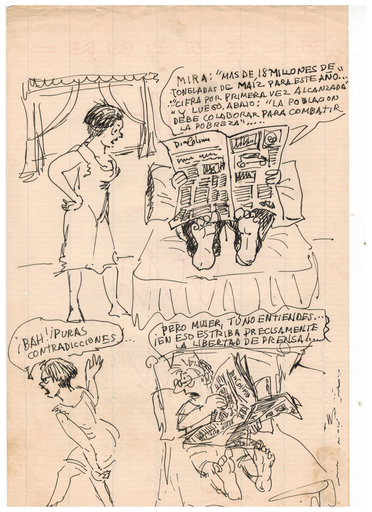 MIRA: "MAS DE 18 MILLONES DE
TONELADAS DE MAIZ PARA ESTE AÑO...
"CIFRA POR PRIMERA VEZ ALCANZADA"
"Y LUEGO, ABAJO: "LA POBLACION
DEBE COLABORAR PARA COMBATIR
LA POBREZA"....
¡BAH! ¡PURAS
CONTRADICCIONES...
PERO MUJER, TÚ NO ENTIENDES...
¡EN ESO ESTRIBA PRECISAMENTE
LA LIBERTAD DE PRENSA!...